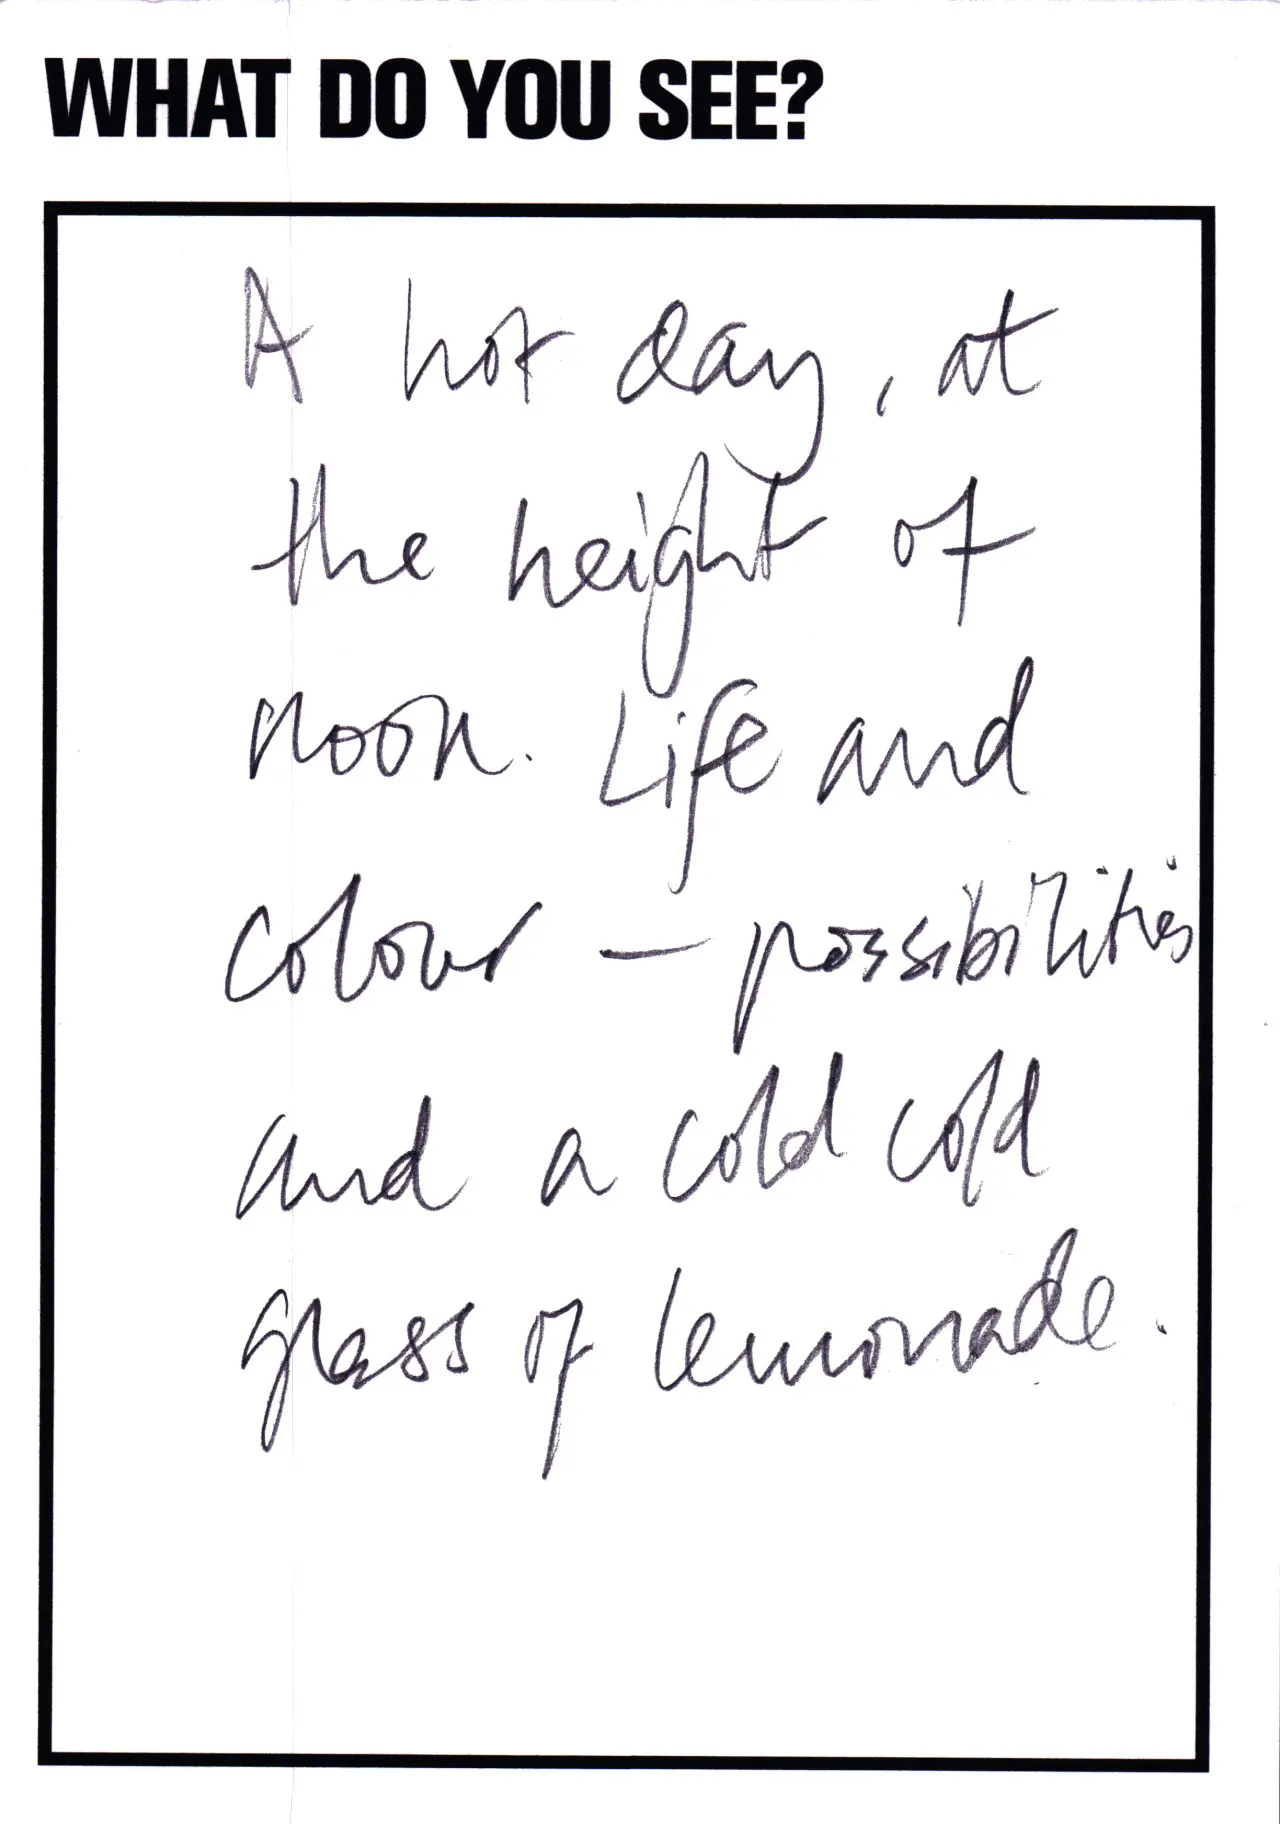 WHAT DO YOU SEE?
A hot day, at
the height of
noon. Life and
colour – possibilities
and a cold cold
glass of lemonade.